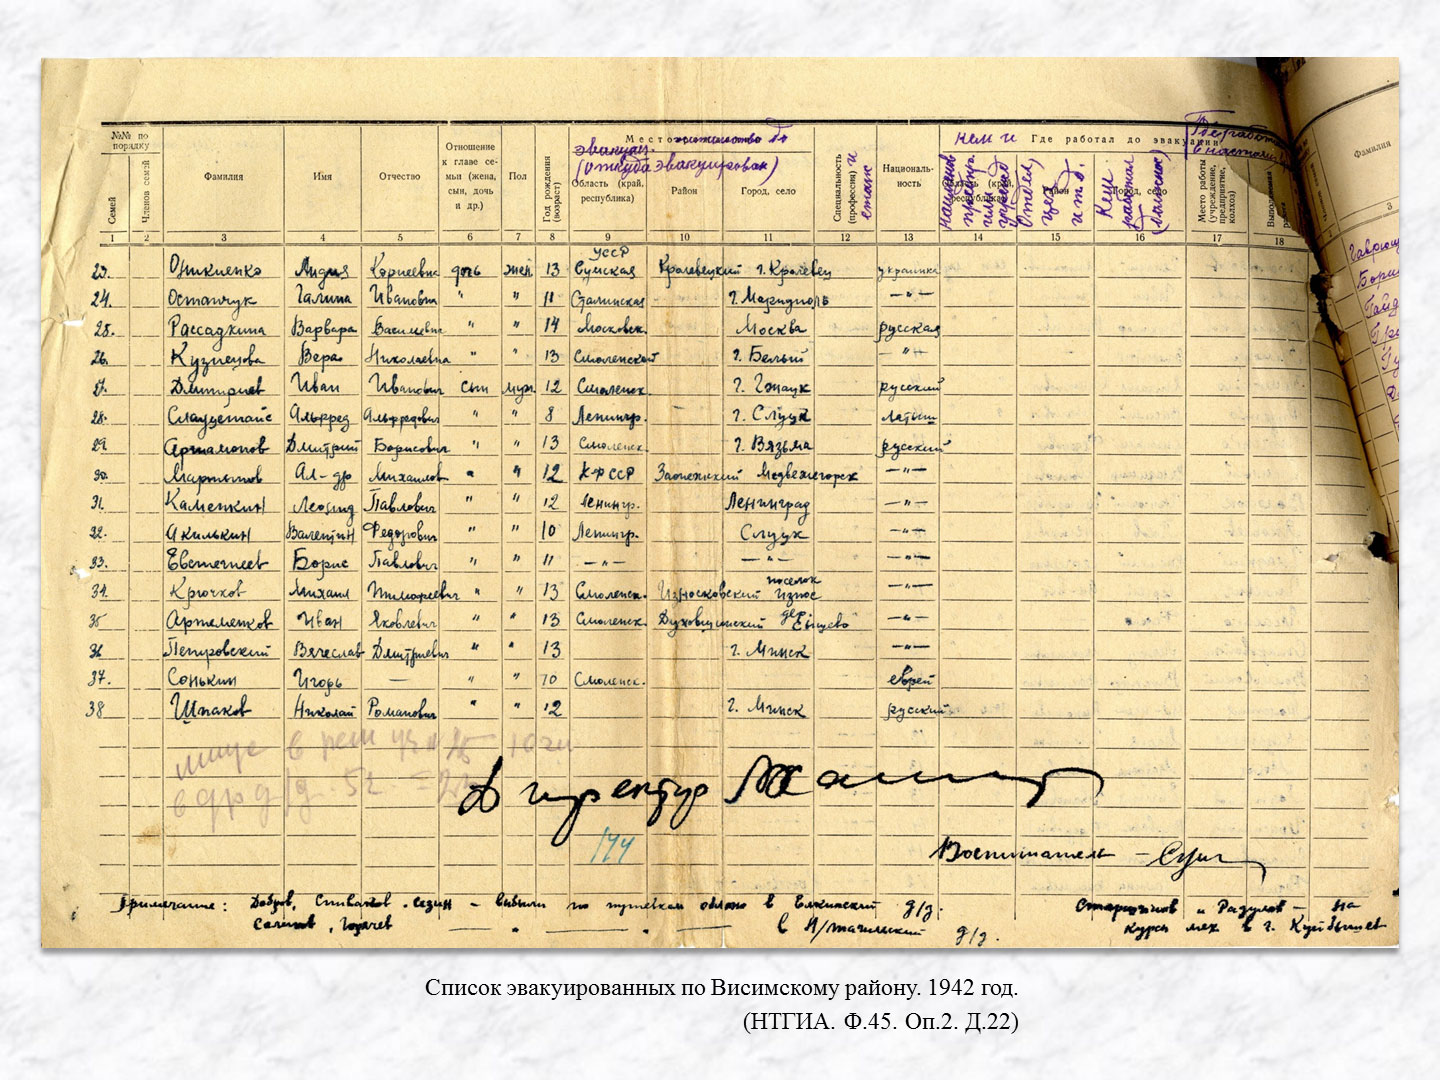 №№ по порядку
Семей
Членов семей
Фамилия
Имя
Отчество
Отношение к главе семьи (жена, сын, дочь и др.)
Пол
Год рождения (возраст)
Место жительства до эвакуац. (откуда эвакуирован)
Область (край, республика)
Район
Город, село
Специальность (профессия) и стаж
Националь-ность
Где работал до эвакуации
кем и
Место работы (учреждение, предприятие, колхоз)
Фамилия
1 2 3 4 5 6 7 8 9 10 11 12 13 14 15 16 17 18 3
УССР
23. Оникиенко Лидия Корнеевна дочь жен 13 Сумская Кролевецкий г. Кролевец украинка
24. Остапчук Галина Ивановна " " 11 Сталинская г. Мариуполь — " —
25. Рассадкина Варвара Васильевна " " 14 Московск. Москва русская
26. Кузнецова Вера Николаевна " " 13 Смоленской г. Белый — " —
27. Дмитриев Иван Иванович сын муж. 12 Смоленск. г. Гжатск русский
28. Альфред Альфредович " " 8 Ленингр. — г. Слуцк латыш
29. Артамонов Дмитрий Борисович " " 13 Смоленск. г. Вязьма русский
30. Мартынов Ал-др Михайлов " " 12 КФССР Медвежегорск — " —
31. Каменкин Леонид Павлович " " 12 Ленингр. Ленинград — " —
32. Акилькин Валентин Федорович " " 10 Ленингр. Слуцк — " —
33. Евстегнеев Борис Павлович " " 11 — " — — " — — " —
34. Крючков Михаил Тимофеевич " " 13 Смоленск. Износковский поселок Износ — " —
35 Артеменков Иван Яковлевич " " 13 Смоленск. Духовщинский дер. — " —
36 Петровский Вячеслав Дмитриевич " " 13 г. Минск — " —
37. Сонькин Игорь — " " 10 Смоленск. еврей
38 Шпаков Николай Романович " " 12 г. Минск русский
Директор
144
Воспитатель —
Примечание: Добров, — выбыли по путевкам облоно в д/д.
Салинов, Горячев — " — " — в Н/тагильский д/д.
и Разулов — на
курсы мех. в г. Куйбышев
Список эвакуированных по Висимскому району. 1942 год.
(НТГИА. Ф.45. Оп.2. Д.22)